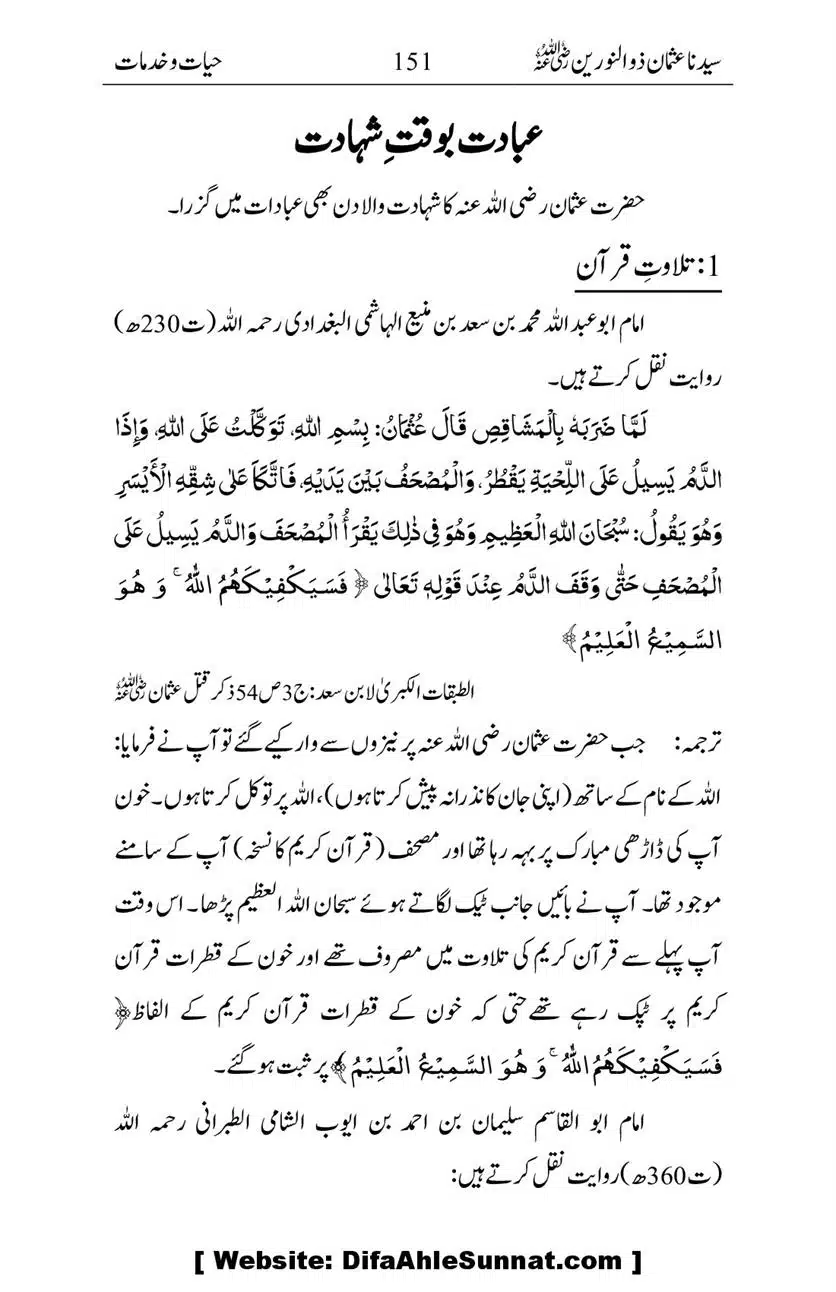 سیدنا عثمان ذوالنورین رضی اللہ عنہ 151 حیات و خدمات
عبادت بوقتِ شہادت
حضرت عثمان رضی اللہ عنہ کا شہادت والا دن بھی عبادات میں گزرا۔
1: تلاوتِ قرآن
امام ابو عبد اللہ محمد بن سعد بن منیع الہاشمی البغدادی رحمہ اللہ (ت230ھ)
روایت نقل کرتے ہیں۔
لَمَّا ضَرَبَهٗ بِالْمَشَاقِصِ قَالَ عُثْمَانُ: بِسْمِ اللهِ، تَوَكَّلْتُ عَلَى اللهِ، وَإِذَا
الدَّمُ يَسِيلُ عَلَى اللِّحْيَةِ يَقْطُرُ، وَالْمُصْحَفُ بَيْنَ يَدَيْهِ، فَاتَّكَأَ عَلىٰ شِقِّهِ الْأَيْسَرِ
وَهُوَ يَقُولُ: سُبْحَانَ اللهِ الْعَظِيمِ وَهُوَ فِي ذٰلِكَ يَقْرَأُ الْمُصْحَفَ وَالدَّمُ يَسِيلُ عَلَى
الْمُصْحَفِ حَتّٰى وَقَفَ الدَّمُ عِنْدَ قَوْلِهٖ تَعَالىٰ ﴿ فَسَيَكْفِيْكَهُمُ اللهُ ۚ وَ هُوَ
السَّمِيْعُ الْعَلِيْمُ﴾
الطبقات الکبریٰ لابن سعد: ج3ص54 ذکر قتل عثمان رضی اللہ عنہ
ترجمہ: جب حضرت عثمان رضی اللہ عنہ پر نیزوں سے وار کیے گئے تو آپ نے فرمایا:
اللہ کے نام کے ساتھ (اپنی جان کا نذرانہ پیش کرتا ہوں)، اللہ پر توکل کرتا ہوں۔ خون
آپ کی ڈاڑھی مبارک پر بہہ رہا تھا اور مصحف (قرآن کریم کا نسخہ) آپ کے سامنے
موجود تھا۔ آپ نے بائیں جانب ٹیک لگاتے ہوئے سبحان اللہ العظیم پڑھا۔ اس وقت
آپ پہلے سے قرآن کریم کی تلاوت میں مصروف تھے اور خون کے قطرات قرآن
کریم پر ٹپک رہے تھے حتی کہ خون کے قطرات قرآن کریم کے الفاظ ﴿
فَسَيَكْفِيْكَهُمُ اللهُ ۚ وَ هُوَ السَّمِيْعُ الْعَلِيْمُ ﴾ پر ثبت ہو گئے۔
امام ابو القاسم سلیمان بن احمد بن ایوب الشامی الطبرانی رحمہ اللہ
(ت360ھ) روایت نقل کرتے ہیں:
[ Website: DifaAhleSunnat.com ]